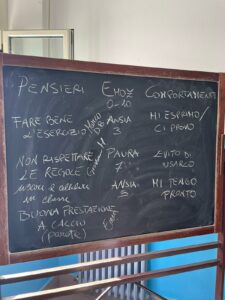 PENSIERI EMOZ COMPORTAMENTI
0-10
FARE BENE ANSIA MI ESPRIMO/
L'ESERCIZIO 3 CI PROVO
NON RISPETTARE PAURA EVITO DI
LE REGOLE 7 USARLO
uscire e andare
in classe ANSIA MI TENGO
BUONA PRESTAZIONE 5 PRONTO
A CALCIO
(parate)